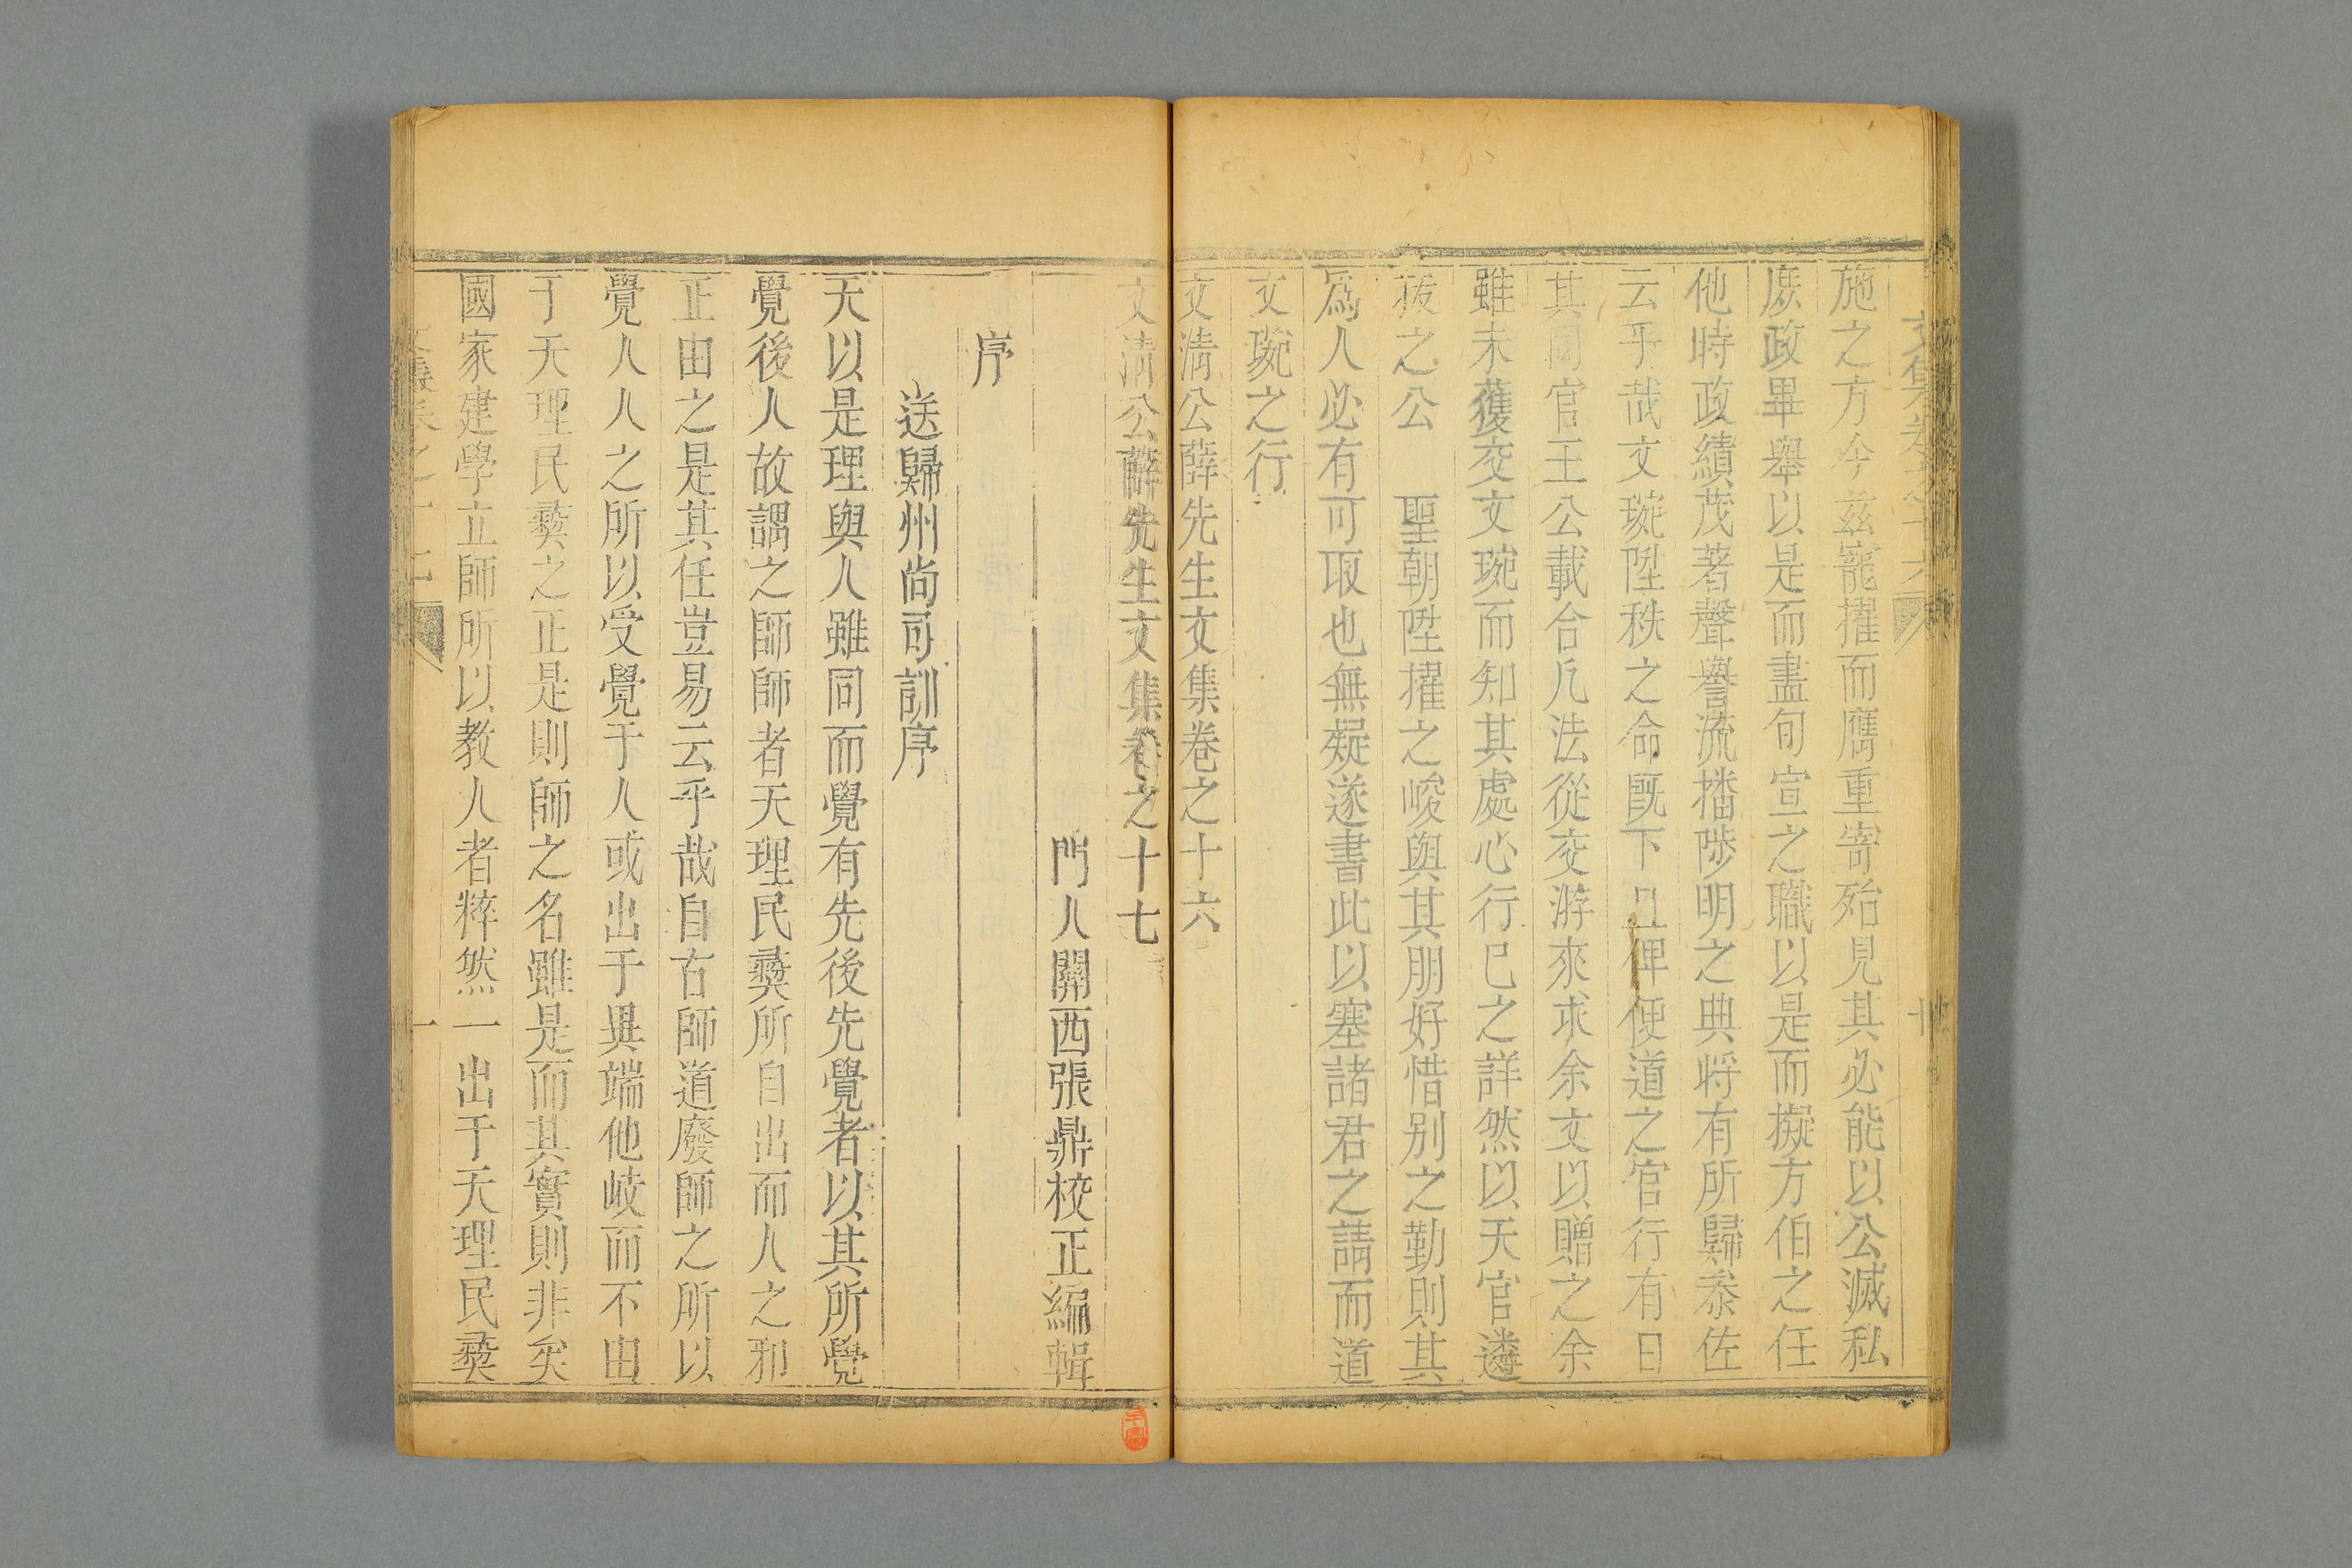 文集卷之十六
施之方今兹寵擢而膺重寄殆見其必能以公滅私
庶政畢舉以是而盡旬宣之職以是而擬方伯之任
他時政績茂著聲譽流播陟明之典將有所歸叅佐
云乎哉文琬陞秩之命既下且俾便道之官行有日
其同官王公載合凡法從交游來求余文以贈之余
雖未獲交文琬而知其處心行巳之詳然以天官遴
拔之公 聖朝陞擢之峻與其朋好惜别之勤則其
爲人必有可取也無疑遂書此以塞諸君之請而道
文琬之行
文清公薛先生文集卷之十六
文清公薛先生文集卷之十七
門人關西張鼎校正編輯
序
送歸州尚司訓序
天以是理與人雖同而覺有先後先覺者以其所覺
覺後人故謂之師師者天理民彛所自出而人之邪
正由之是其任豈易云乎哉自古師道廢師之所以
覺人人之所以受覺于人或出于異端他岐而不由
于天理民彛之正是則師之名雖是而其實則非矣
國家建學立師所以教人者粹然一出于天理民彛
文集卷之十七
一